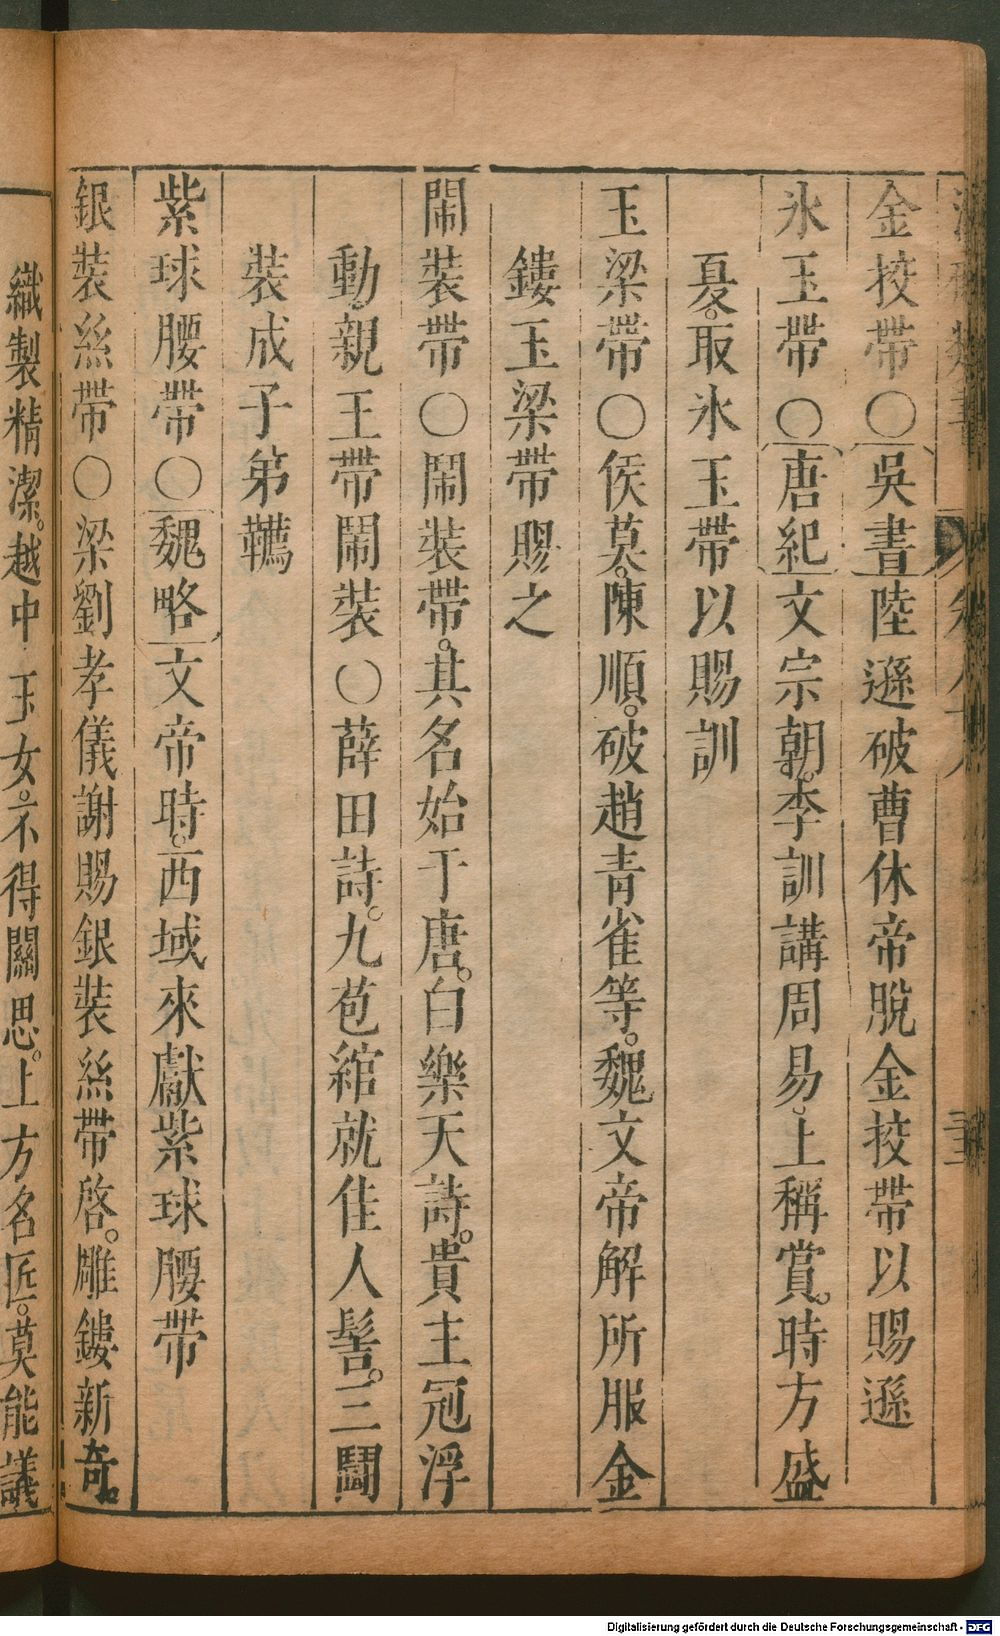 金挍帶○吳書陸遜破曹休帝脫金挍帶以賜遜
氷玉帶○唐紀文宗朝。李訓講周易。上稱賞。時方盛
夏。取氷玉帶以賜訓
玉梁帶○侯莫。陳順。破趙青雀等。魏文帝解所服金
鏤玉梁帶賜之
鬧裝帶○鬧裝帶。其名始于唐。白樂天詩。貴主冠浮
動。親王帶鬧裝○薛田詩。九苞綰就佳人髻。三鬭
裝成子弟韉
紫球腰帶○魏略文帝時。西域來獻紫球腰帶
銀裝絲帶○梁劉孝儀謝賜銀裝絲帶啓。雕鏤新奇。
織製精潔。越中玉女。不得關思。上方名匠。莫能議
Digitalisierung gefördert durch die Deutsche Forschungsgemeinschaft - DFG